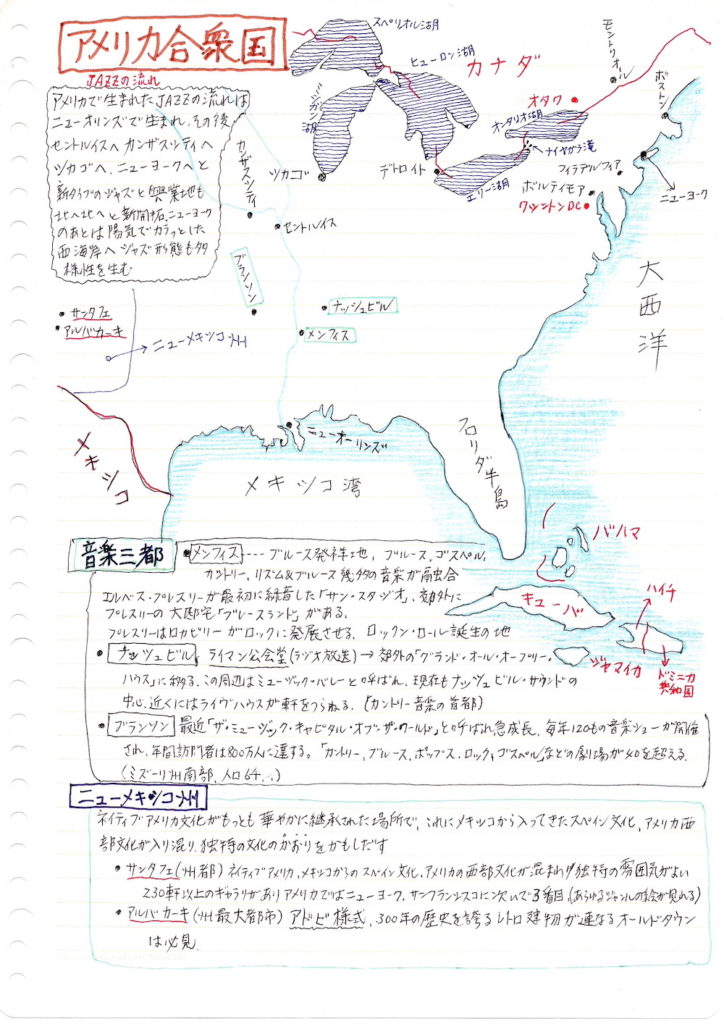 アメリカ合衆国
JAZZの流れ
アメリカで生まれたJAZZの流れは
ニューオリンズで生まれ、その後
セントルイスへ カンザスシティへ
シカゴへ、ニューヨークへと
新タイプのジャズと興業地も
北へ北へと新開拓、ニューヨーク
のあとは陽気でカラッとした
西海岸へジャズ形態も多
様性を生む
スペリオル湖
ヒューロン湖
カナダ
モントリオール
ボストン
オタワ
オンタリオ湖
ミシガン湖
ナイヤガラ滝
シカゴ
デトロイト
エリー湖
フィラデルフィア
ボルティモア
ニューヨーク
ワシントンDC
カンザスシティ
セントルイス
ブランソン
大西洋
ナッシュビル
メンフィス
サンタフェ
アルバカーキ
ニューメキシコ州
メキシコ
ニューオーリンズ
メキシコ湾
フロリダ半島
バハマ
キューバ
ハイチ
ジャマイカ
ドミニカ
共和国
音楽三都
●メンフィス----ブルース発祥地, ブルース、ゴスペル,
カントリー、リズム&ブルース 幾多の音楽が融合
エルベス・プレスリーが最初に録音した「サン・スタジオ」、郊外に
プレスリーの大邸宅「グレースランド」がある.
プレスリーはロカビリーがロックに発展させる、ロックン・ロール誕生の地
●ナッシュビル ライマン公会堂(ラジオ放送)→郊外の「グランド・オール・オープリー・
ハウス」に移る、この周辺はミュージック・バレーと呼ばれ、現在もナッシュビル・サウンドの
中心、近くにはライヴハウスが軒をつらねる.(カントリー音楽の首都)
●ブランソン 最近「ザ・ミュージック・キャピタル・オブ・ザ・ワールド」と呼ばれ急成長、毎年120もの音楽ショーが開催
され、年間訪問者は800万人に達する。「カントリー、ブルース、ポップス、ロック、ゴスペル」などの劇場が40を超える.
(ミズーリ州南部、人口6千..)
ニューメキシコ州
ネイティブアメリカ文化がもっとも華やかに継承された場所で、これにメキシコから入ってきたスペイン文化、アメリカ西
部文化が入り混り、独特の文化のかおりをかもしだす
●サンタフェ(州都) ネイティブアメリカ、メキシコからのスペイン文化、アメリカの西部文化が混まれ独特の雰囲気がよい
230軒以上のギャラリがありアメリカではニューヨーク、サンフランシスコに次いで3番目(あらゆるジャンルの絵が見れる)
●アルバカーキ(州最大都市) アドビ様式、300年の歴史を誇るレトロ建物が連なるオールドタウン
は必見